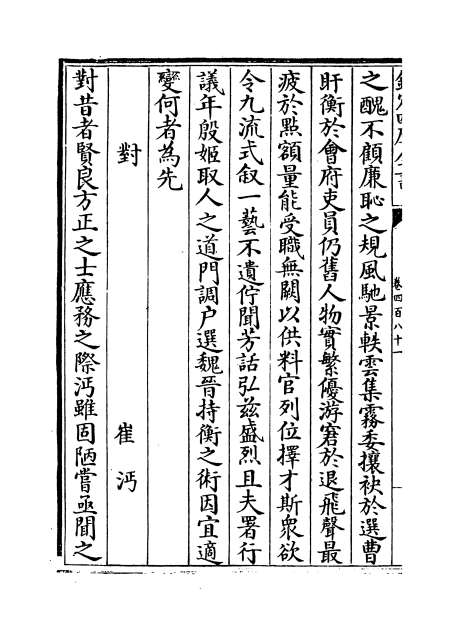 欽定四庫全書
卷四百八十一
之醜不顧廉恥之規風馳景軼雲集霧委攘袂於選曹
盱衡於會府吏員仍舊人物實繁優游窘於退飛聲最
疲於點額量能受職無闕以供料官列位擇才斯衆欲
令九流式叙一藝不遺佇聞芳話弘兹盛烈且夫署行
議年殷姬取人之道門調户選魏晉持衡之術因宜適
變何者為先
對　　崔沔
對昔者賢良方正之士應務之際沔雖固陋嘗亟聞之